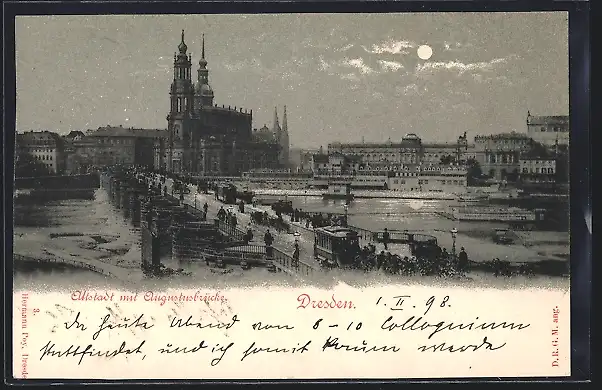 Altstadt mit Augustusbrücke. Dresden. 1. II. 98.
Da heute Abend von 8-10 Colloquium
stattfindet, und ich somit kaum werde
3.
Hermann Poy, Dresden
D. R. G. M. ang.